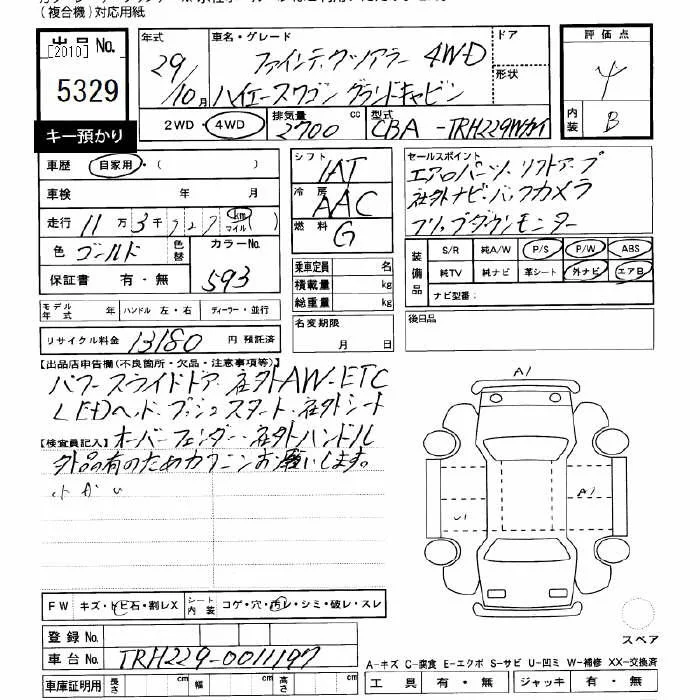 (複合機)対応用紙
出品No.
[2010]
5329
キー預かり
年式
29/10月
車名・グレード
ファインテックツアラー 4WD
ハイエースワゴン グランドキャビン
ドア
形状
2WD・4WD
排気量
2700 cc
型式
CBA-TRH229Wカイ
評価点
4
内装
B
車歴 自家用・( )
車検 年 月
走行 11万3千727 km マイル ( )
色 ゴールド
色替
カラーNo.
593
保証書 有・無
シフト
IAT
冷房
AAC
燃料
G
乗車定員 名
積載量 kg
総重量 kg
セールスポイント
エアロパーツ・リフトアップ
社外ナビ・バックカメラ
フリップダウンモニター
装備品
S/R 純A/W P/S P/W ABS
純TV 純ナビ 革シート 外ナビ エアB
ナビ型番:
モデル年式 年 ハンドル 左・右 ディーラー・並行
リサイクル料金 13180 円 預託済
名変期限
月 日
後日品
【出品店申告欄(不良箇所・欠品・注意事項等)】
パワースライドドア・社外AW・ETC
LEDヘッド・プッシュスタート・社外シート
【検査員記入】 オーバーフェンダー・社外ハンドル
外品有のためカクニンお願いします。
小かい
A1
A1
U1
FW キズ・トビ石・割レX
シート内装 コゲ・穴・汚レ・シミ・破レ・スレ
登録No.
車台No. TRH229-0011197
車庫証明用 長さ 幅 高さ
スペア
A-キズ C-腐食 E-エクボ S-サビ U-凹ミ W-補修 XX-交換済
工具 有・無 ジャッキ 有・無